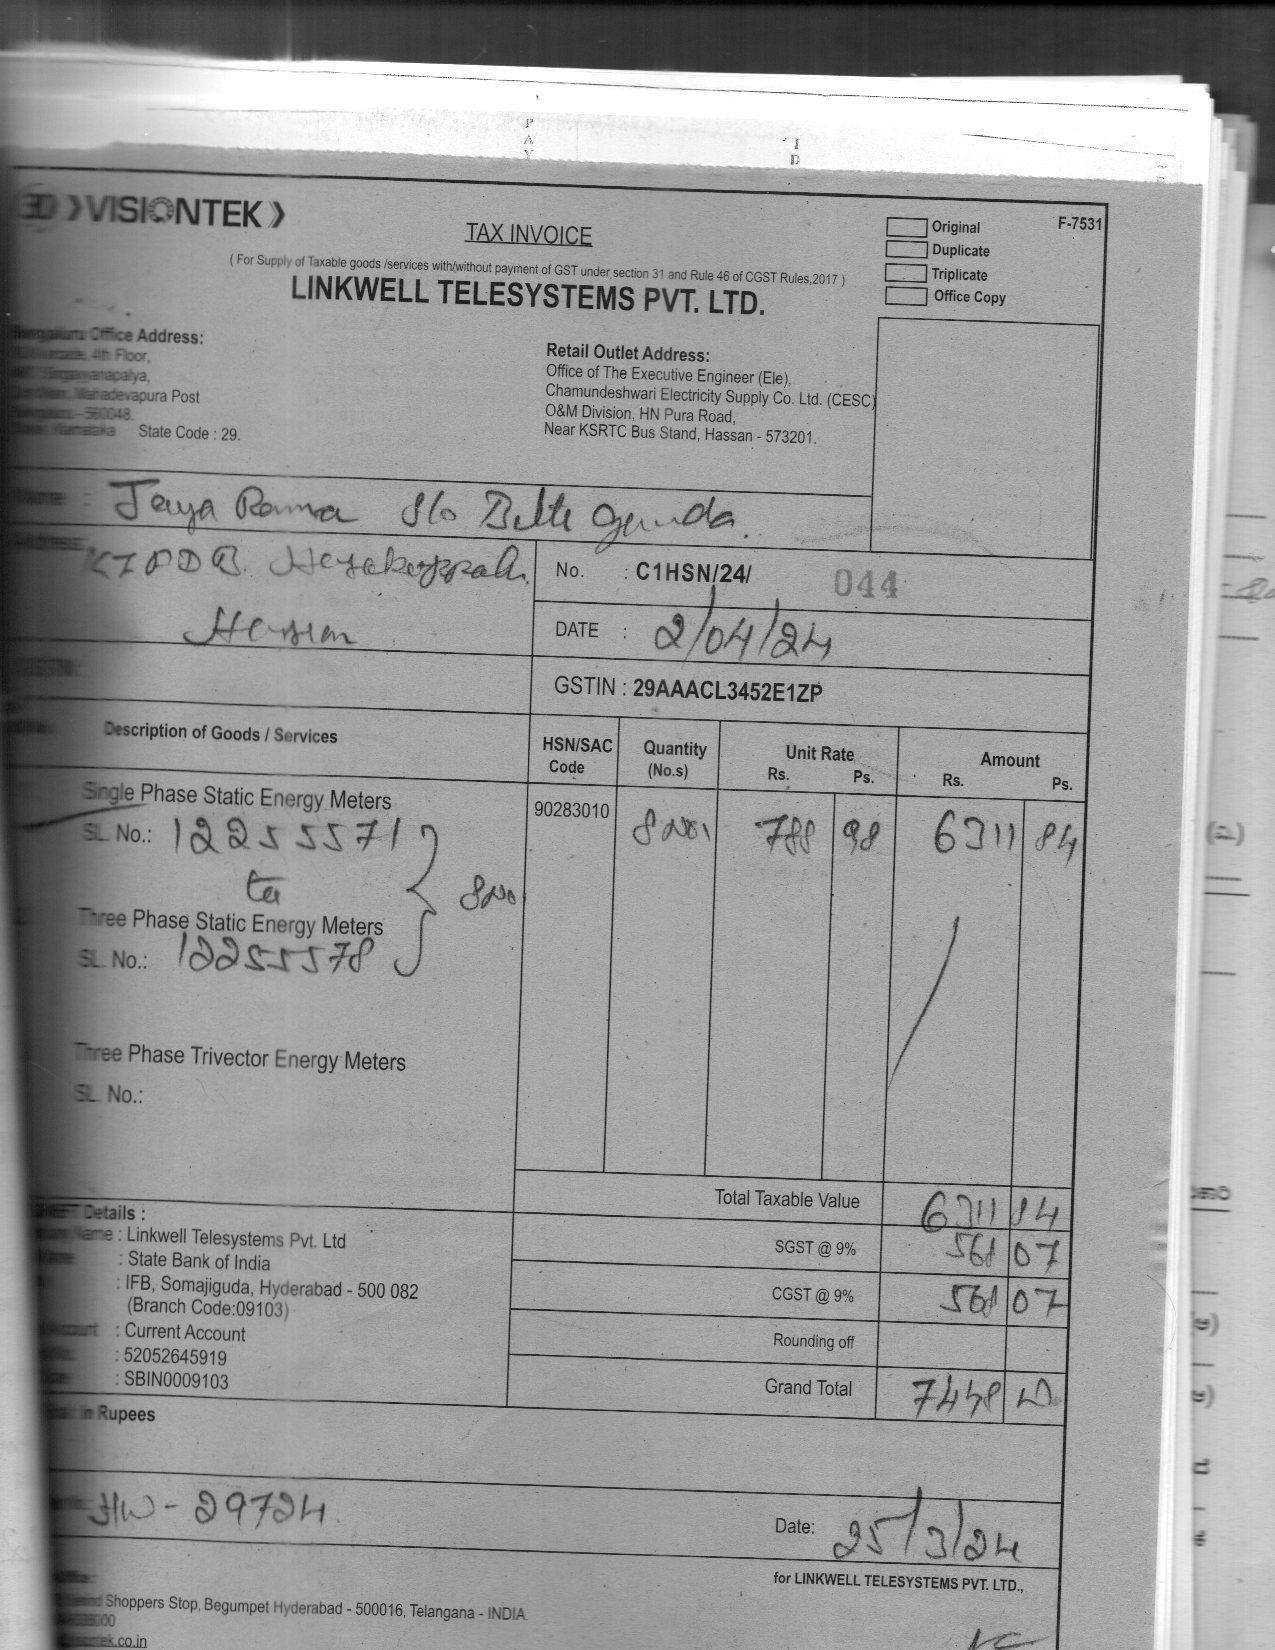 P
A
Y
I
D
VISIONTEK
TAX INVOICE
Original
Duplicate
Triplicate
Office Copy
F-7531
( For Supply of Taxable goods /services with/without payment of GST under section 31 and Rule 46 of CGST Rules,2017 )
LINKWELL TELESYSTEMS PVT. LTD.
Office Address:
4th Floor,
Mahadevapura Post
- 560048.
State Code : 29.
Retail Outlet Address:
Office of The Executive Engineer (Ele),
Chamundeshwari Electricity Supply Co. Ltd. (CESC)
O&M Division, HN Pura Road,
Near KSRTC Bus Stand, Hassan - 573201.
Name : Jaya Rama S/o
No. : C1HSN/24/ 044
DATE : 2/04/24
GSTIN : 29AAACL3452E1ZP
Description of Goods / Services
HSN/SAC Code
Quantity (No.s)
Unit Rate Rs. Ps.
Amount Rs. Ps.
Single Phase Static Energy Meters
90283010 8 Nos 788 98 6311 84
SL. No.: 12255571
to
8 No
Three Phase Static Energy Meters
SL. No.: 12255578
Three Phase Trivector Energy Meters
SL. No.:
Total Taxable Value 6311 84
SGST @ 9% 568 07
CGST @ 9% 568 07
Rounding off
Grand Total 7448
Details :
Name : Linkwell Telesystems Pvt. Ltd
: State Bank of India
: IFB, Somajiguda, Hyderabad - 500 082
(Branch Code:09103)
Account : Current Account
: 52052645919
: SBIN0009103
in Rupees
- 29724
Date: 25/3/24
for LINKWELL TELESYSTEMS PVT. LTD.,
Shoppers Stop, Begumpet Hyderabad - 500016, Telangana - INDIA